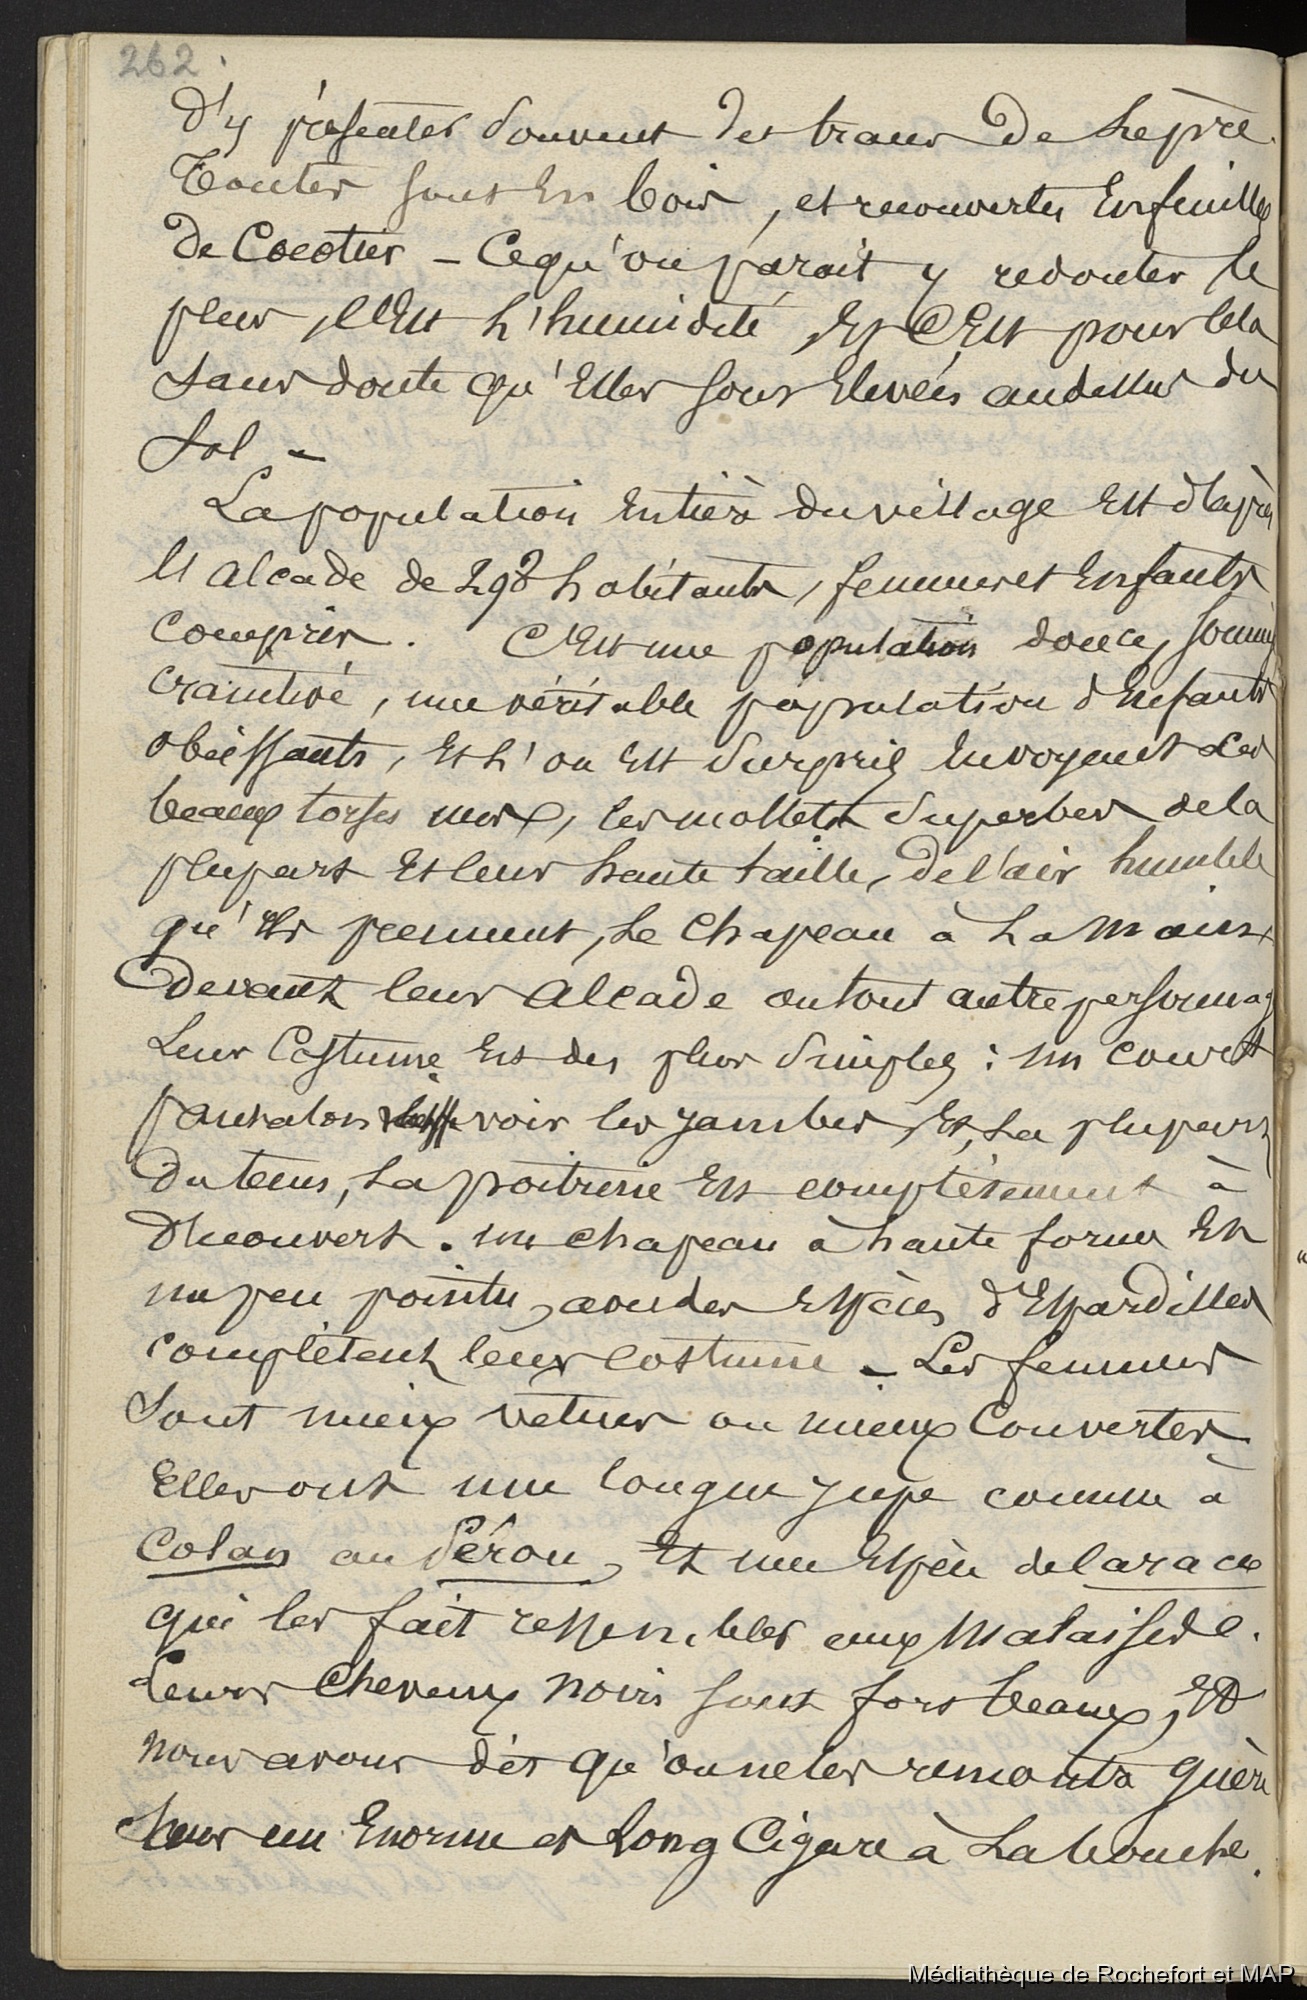 262.
d'y présenter souvent des traces de Lèpre.
Toutes sont En bois, et recouvertes En feuilles
de Cocotier - Ce qu'on parait y redouter le
plus, C'Est L'humidité, Et C'Est pour Cela
sans doute qu'Elles sont Elevées au dessus du
Sol -
La population Entière du village Est d'après
L'alcade de 298 habitants, femmes et Enfants
compris. C'Est une population douce, soumise
craintive, une véritable population d'Enfants
obéissants, Et L'on Est surpris En voyant les
beaux torses nus, les mollets superbes de la
plupart Et leur haute taille, de l'air humble
qu'ils prennent, le chapeau à La main,
devant leur alcade ou tout autre personnage
Leur Costume Est des plus simples : un court
pantalon laisse voir les jambes Et, La plupart
du tems, La poitrine Est complètement à
découvert. un chapeau à haute forme Et
un peu pointu, avec des Espèces d'Espardilles
complètent leur costume - Les femmes
sont mieux vetues ou mieux couvertes -
Elles ont une longue jupe comme à
Colan au Pérou, Et une Espèce de laraco
qui les fait ressembler aux Malaises.
Leurs cheveux noirs sont fort beaux, Et
nous avons dit qu'on ne les rencontre guère
sans un Enorme et Long Cigare à La bouche.
Médiathèque de Rochefort et MAP